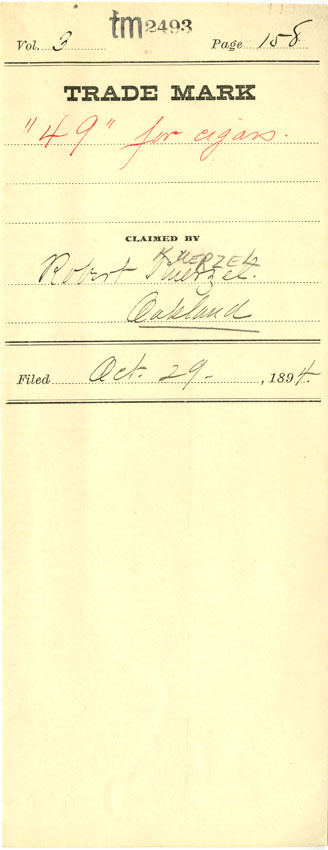 tm 2493
Vol. 3 Page 158
TRADE MARK
"49" for cigars.
CLAIMED BY
KUERZEL
Robert Kuerzel.
Oakland
Filed Oct. 29 - , 1894.